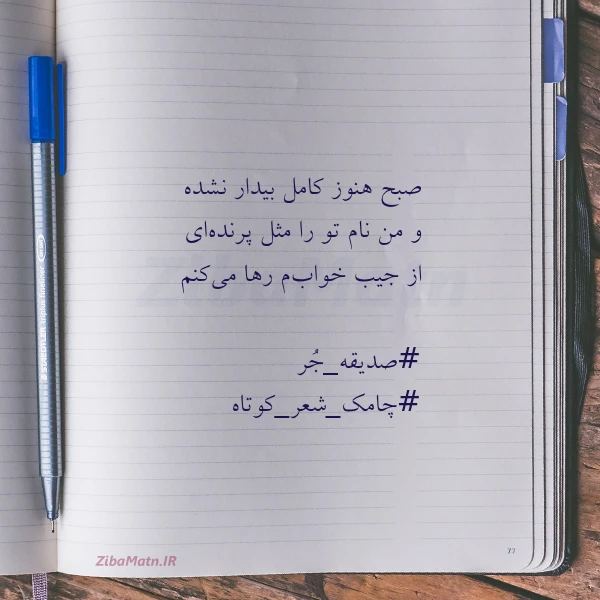 صبح هنوز کامل بیدار نشده
و من نام تو را مثل پرنده‌ای
از جیب خوابم رها می‌کنم
#صدیقه_جُر
#چامک_شعر_کوتاه
ZibaMatn.IR
77